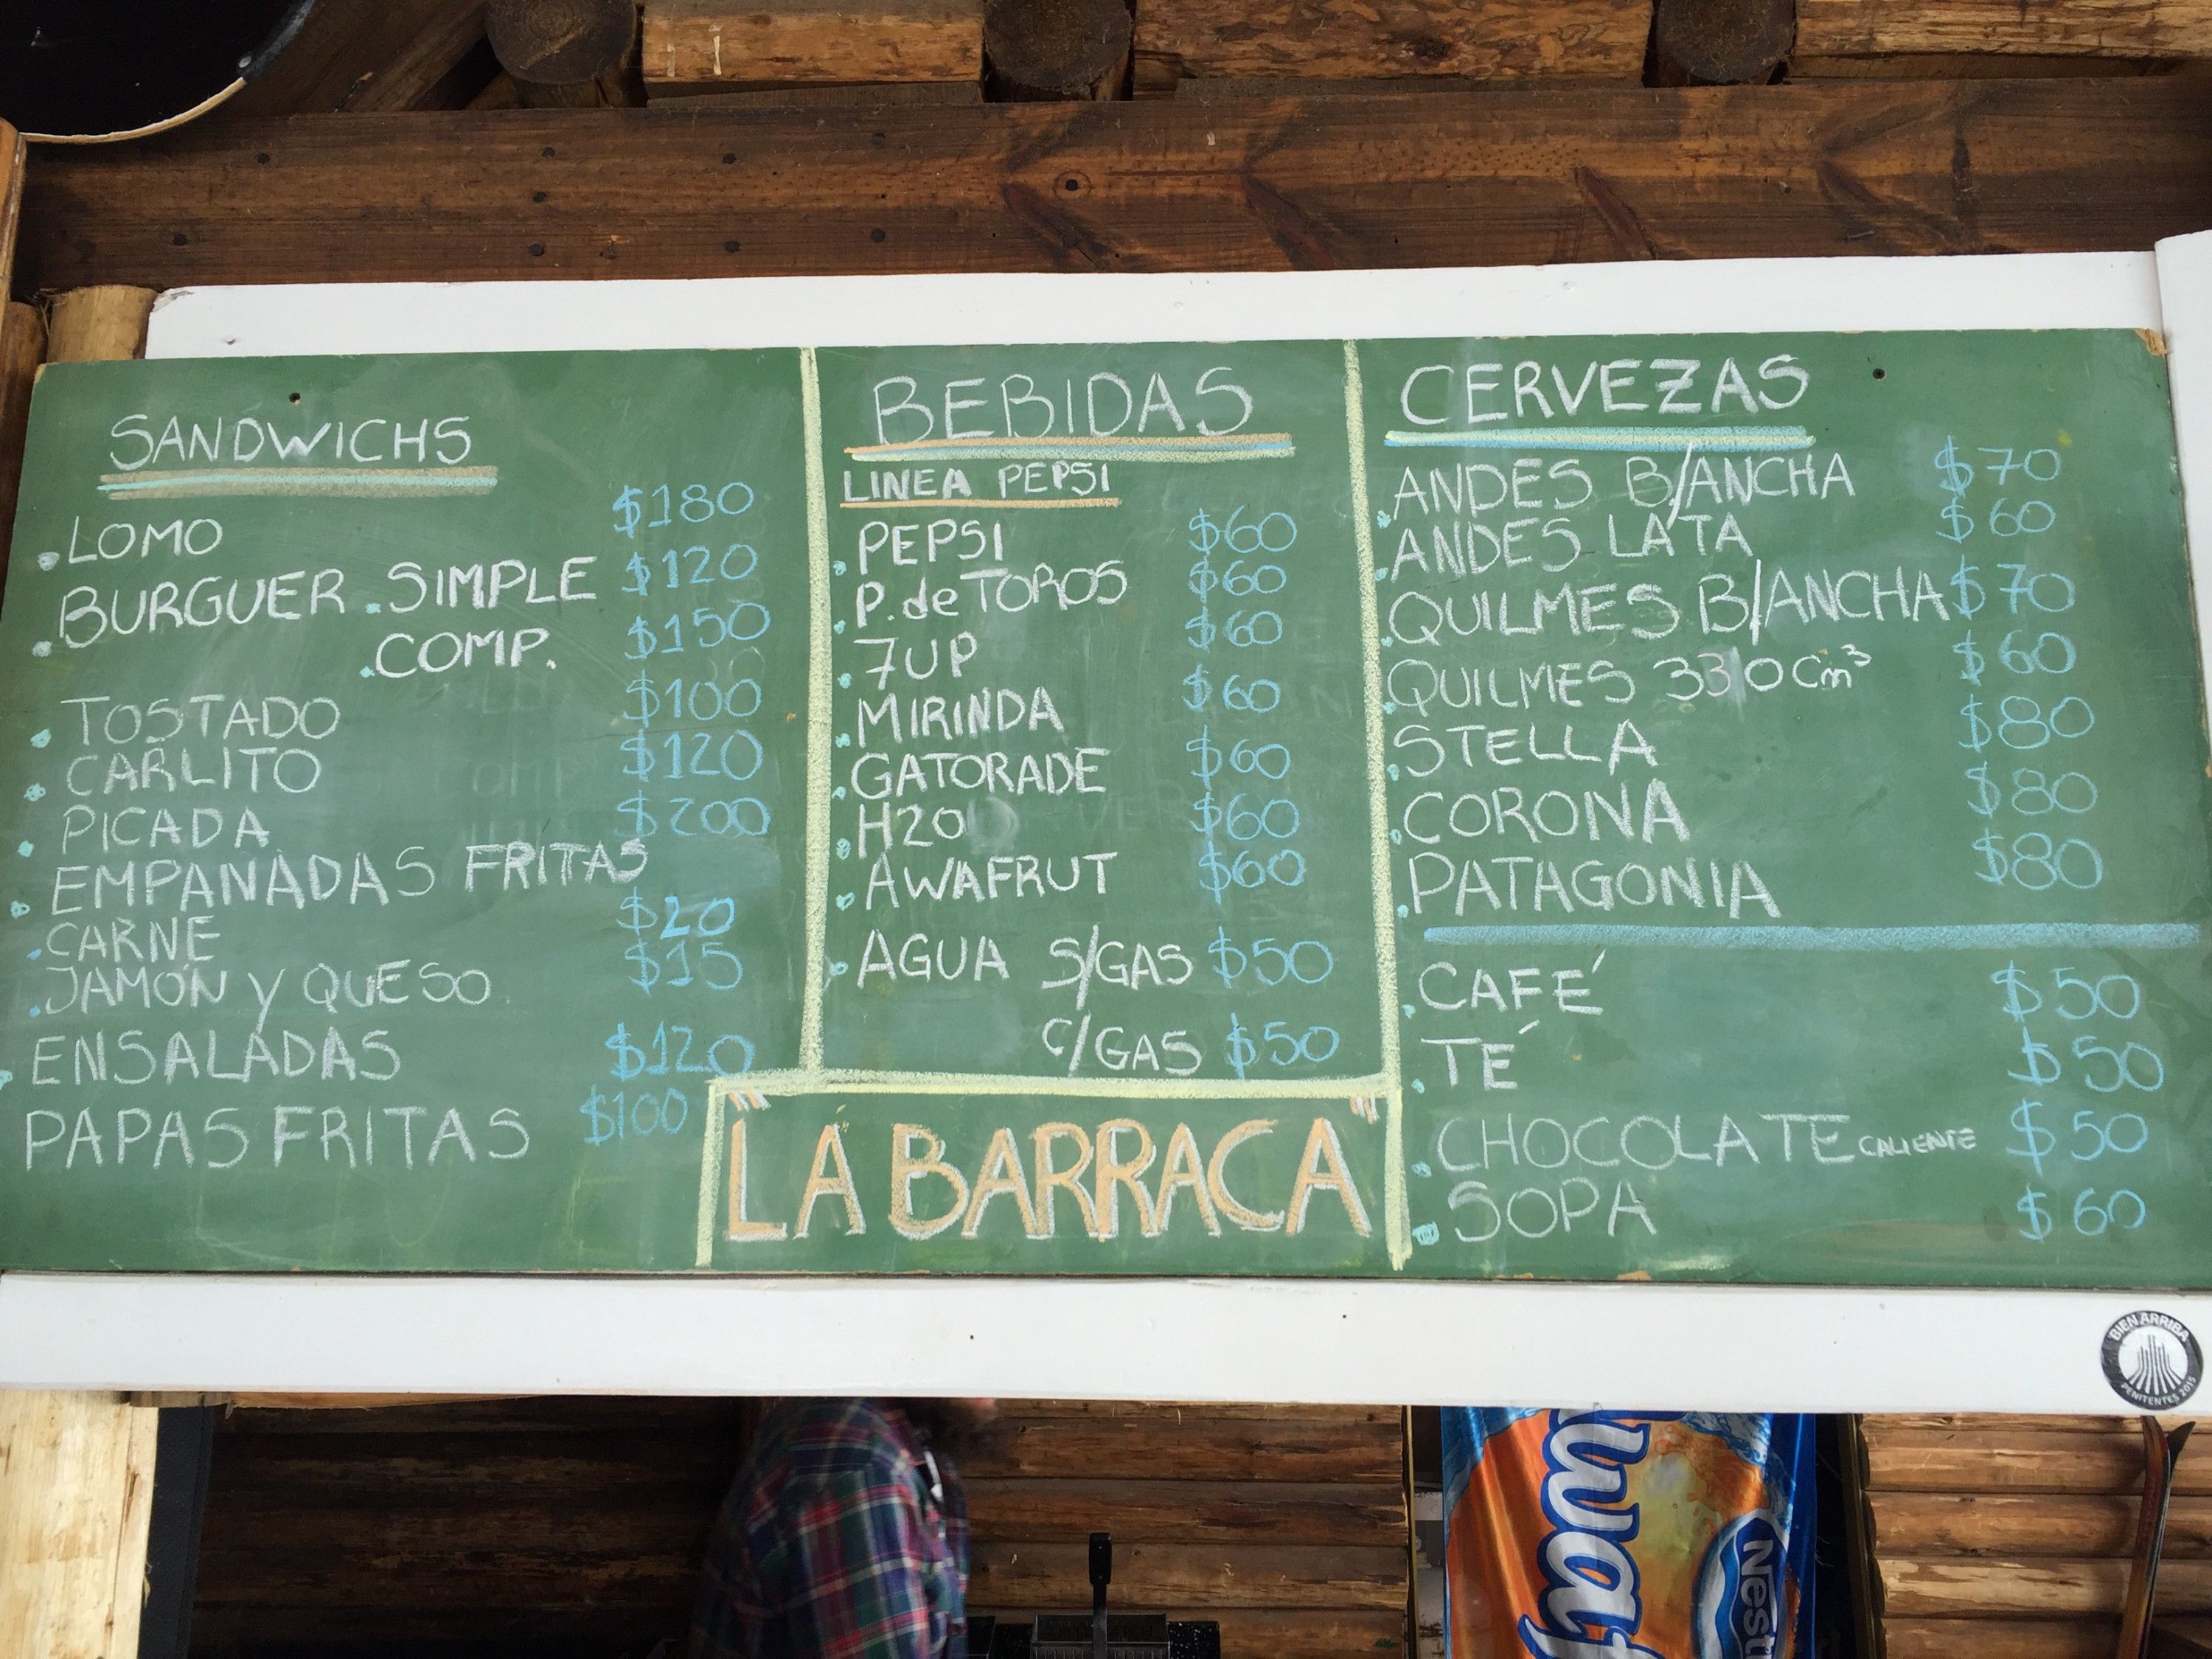 SANDWICHS
.LOMO $180
.BURGUER .SIMPLE $120
.COMP. $150
.TOSTADO $100
.CARLITO $120
.PICADA $200
.EMPANADAS FRITAS
.CARNE $20
.JAMÓN Y QUESO $15
.ENSALADAS $120
PAPAS FRITAS $100
BEBIDAS
LINEA PEPSI
.PEPSI $60
.P. de TOROS $60
.7UP $60
.MIRINDA $60
.GATORADE $60
.H2O $60
.AWAFRUT $60
.AGUA S/GAS $50
C/GAS $50
"LA BARRACA"
CERVEZAS
.ANDES B/ANCHA $70
.ANDES LATA $60
.QUILMES B/ANCHA $70
.QUILMES 330 Cm³ $60
.STELLA $80
.CORONA $80
.PATAGONIA $80
.CAFÉ $50
.TÉ $50
.CHOCOLATE CALIENTE $50
.SOPA $60
BIEN ARRIBA
PENITENTES 2015